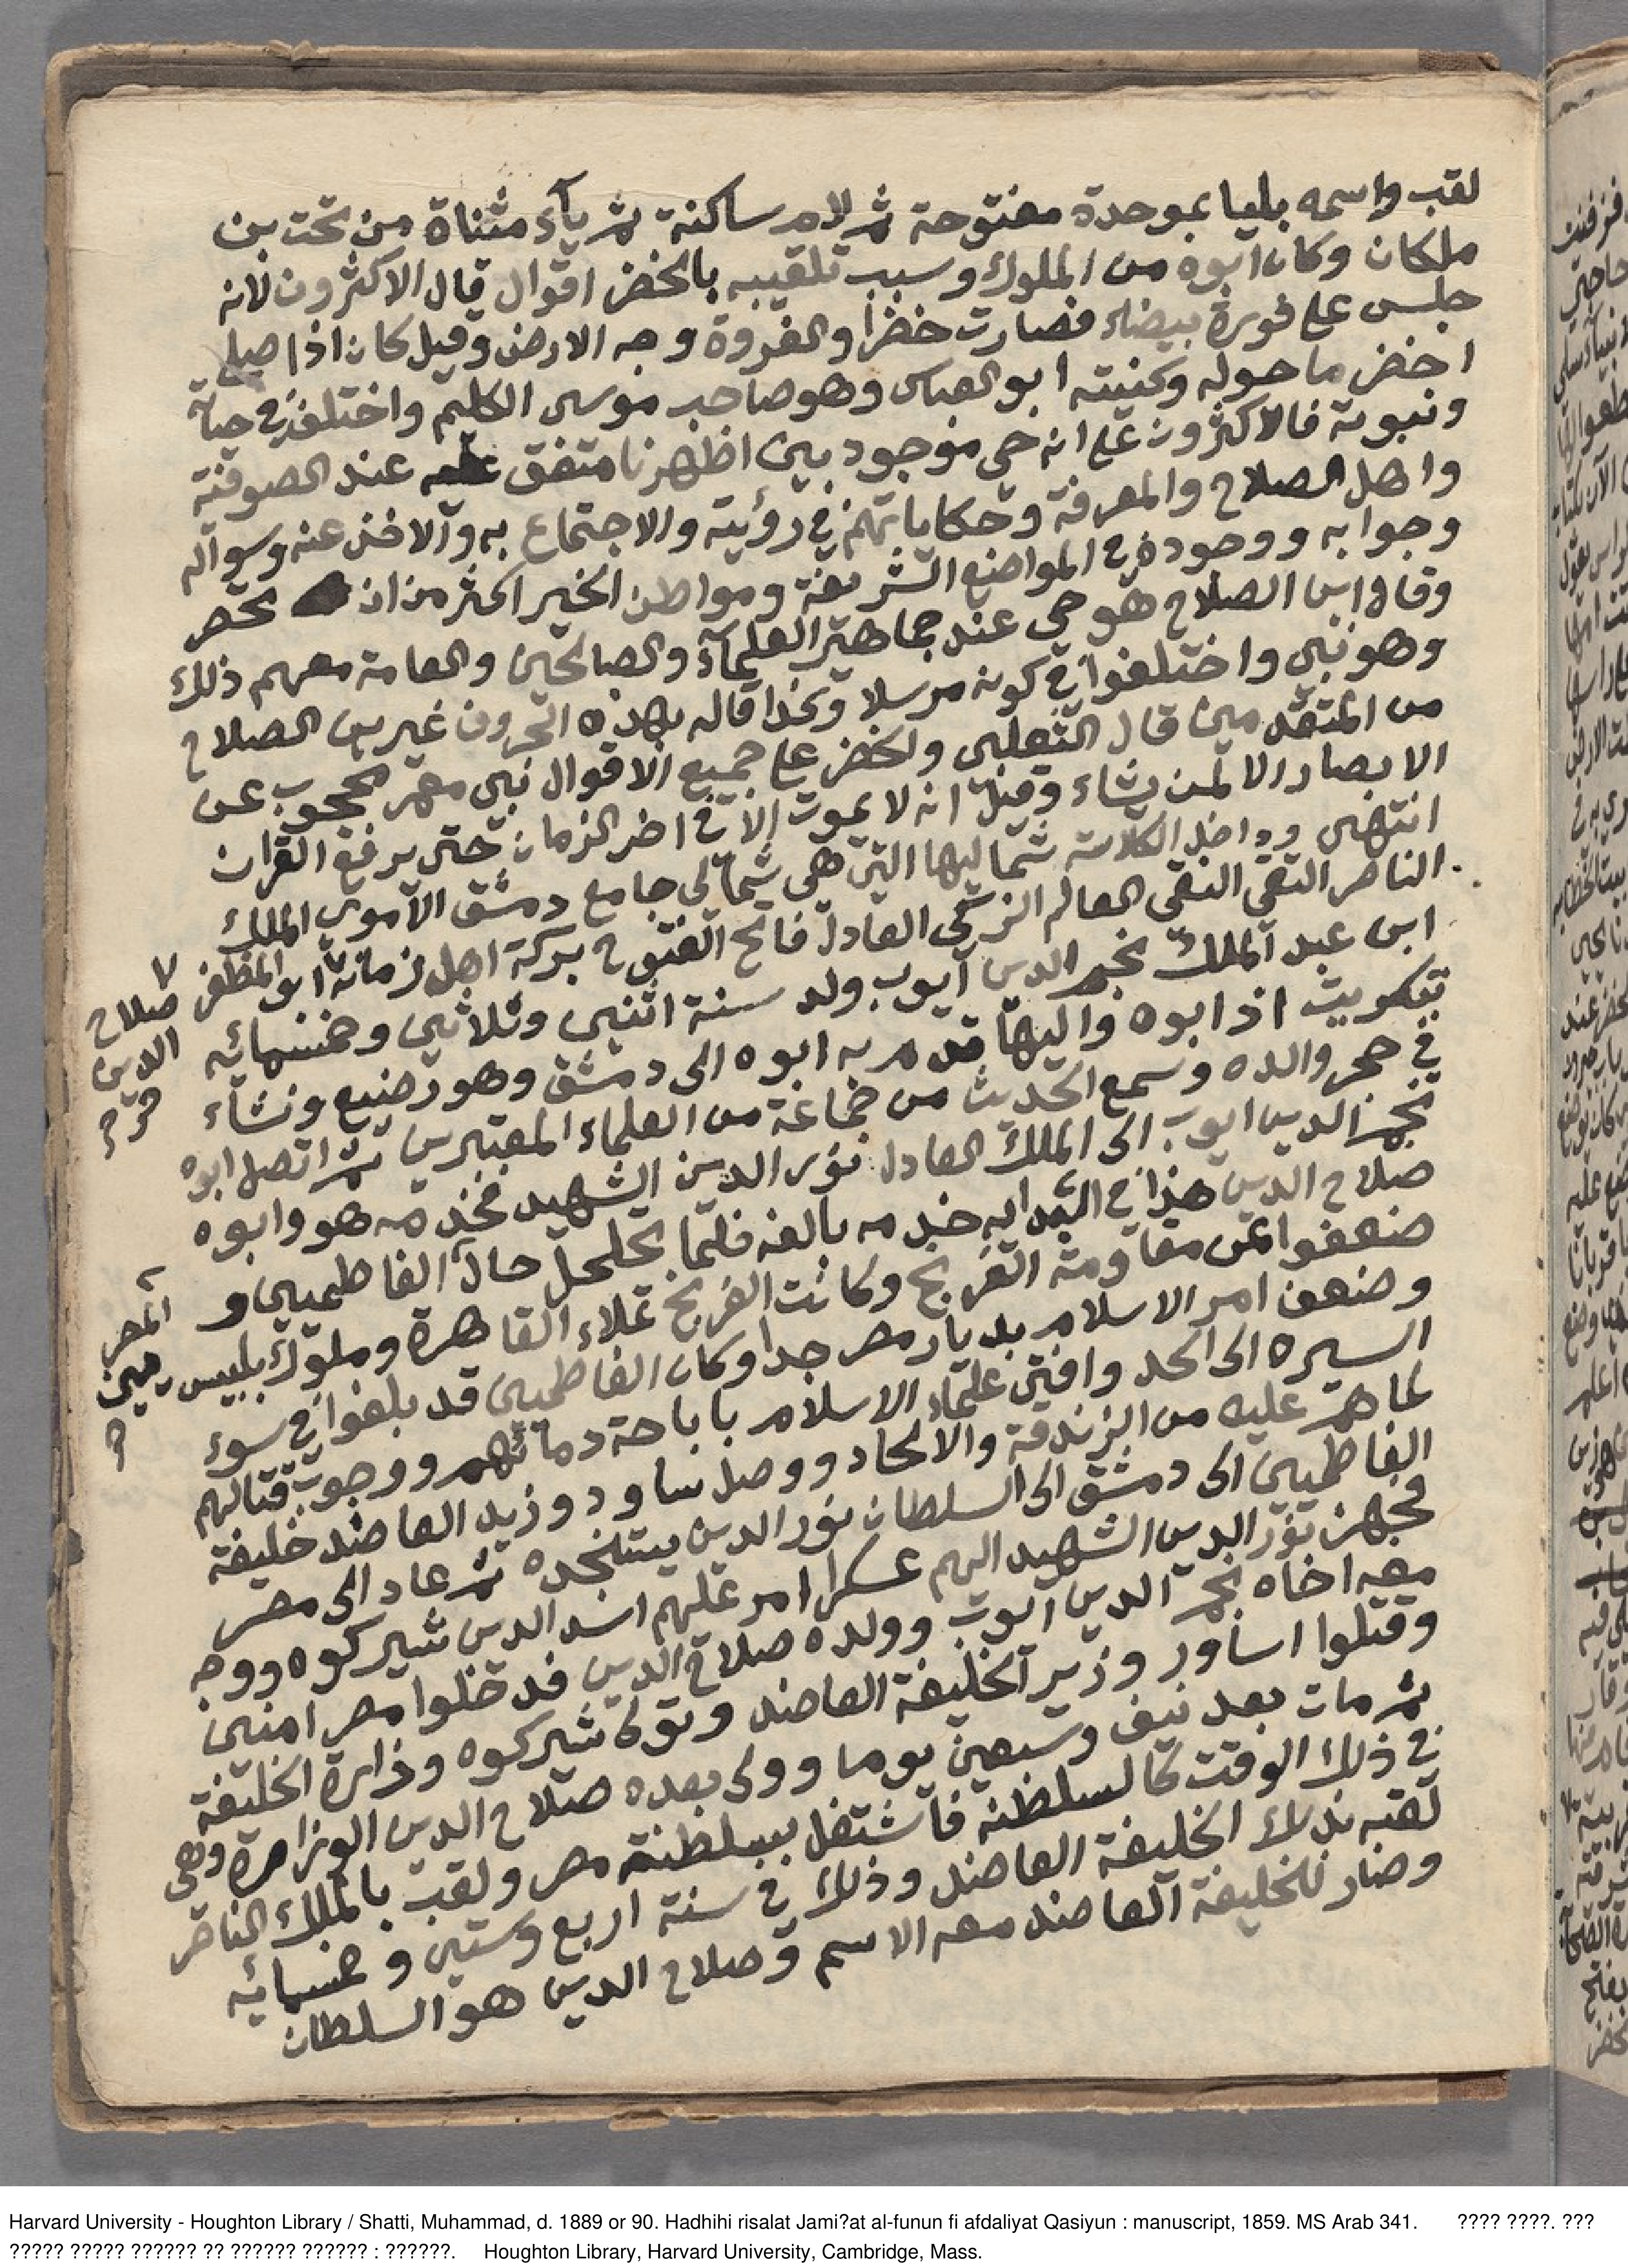 لقب واسمه بليا بموحدة مفتوحة ثم لام ساكنة ثم ياء مثناة من تحت بن
ملكان وكان ابوه من الملوك وسبب تلقيبه بالخضر اقوال قال الاكثرون لانه
جلس على فروة بيضاء فصارت خضرا والفروة وجه الارض وقيل كان اذا صلى
اخضر ما حوله وكنيته ابو العباس وهو صاحب موسى الكليم واختلف في حياته
ونبوته فالاكثرون على انه حي موجود بين اظهرنا متفق عليه عند الصوفية
واهل الصلاح والمعرفة وحكاياتهم في رؤيته والاجتماع به والاخذ عنه وسواله
وجوابه ووجوده في المواضع الشريفة ومواطن الخير اكثر من ان تحصر
وقال ابن الصلاح هو حي عند جماهير العلماء والصالحين والعامة معهم ذلك
وهو نبي واختلفوا في كونه مرسلا وكذا قاله بهذه الحروف غير بن الصلاح
من المتقدمين قال الثعلبي والخضر على جميع الاقوال نبي معمر محجوب عن
الابصار الا لمن يشاء وقيل انه لا يموت الا في اخر الزمان حتى يرفع القران
انتهى وداخل الكلاسة شماليها التي هي شمالي جامع دمشق الاموي الملك
الناصر التقي النقي العالم الزكي العادل فاتح الفتوح بركة اهل زمانه ابو المظفر
صلاح الدين
ابن عبد الملك نجم الدين ايوب ولد سنة اثنين وثلاثين وخمسمائه
بتكريت اذ ابوه واليها قدم به ابوه الى دمشق وهو رضيع ونشاء
في حجر والده وسمع الحديث من جماعة من العلماء المعتبرين ثم اتصل ابوه
نجم الدين ايوب الى الملك العادل نور الدين الشهيد فخدمه هو وابوه
صلاح الدين هذا في البدايه خدمه بالغه فلما تخلخل حال الفاطميين و
ضعفوا عن مقاومة الفرنج وكانت الفرنج تملاء القاهرة وملوك بلبيس
المصريين
وضعف امر الاسلام بديار مصر جدا وكان الفاطميين قد بلغوا في سوء
السيره الى الحد وافتى علماء الاسلام باباحة دمائهم ووجوب قتالهم
لما هم عليه من الزندقة والالحاد ووصل ساور وزير العاضد خليفة
الفاطميين الى دمشق الى السلطان نور الدين يستنجده ثم عاد الى مصر
فجهز نور الدين الشهيد اليهم عسكرا امر عليهم اسد الدين شيركوه ووجه
معه اخاه نجم الدين ايوب وولده صلاح الدين فدخلوا مصر امنين
وقتلوا اساور وزير الخليفة العاضد وتولى شيركوه وذارة الخليفة
ثم مات بعد نيف وسبعين يوما وولى بعده صلاح الدين الوزارة وهي
في ذلك الوقت كالسلطنة فاشتغل بسلطنة مصر ولقب بالملك الناصر
لقبه بذلك الخليفة العاضد وذلك في سنة اربع وستين وخمسمائه
وصار للخليفة العاضد معه الاسم وصلاح الدين هو السلطان
Harvard University - Houghton Library / Shatti, Muhammad, d. 1889 or 90. Hadhihi risalat Jami?at al-funun fi afdaliyat Qasiyun : manuscript, 1859. MS Arab 341. ???? ????. ???
????? ????? ?????? ?? ?????? ?????? : ??????. Houghton Library, Harvard University, Cambridge, Mass.